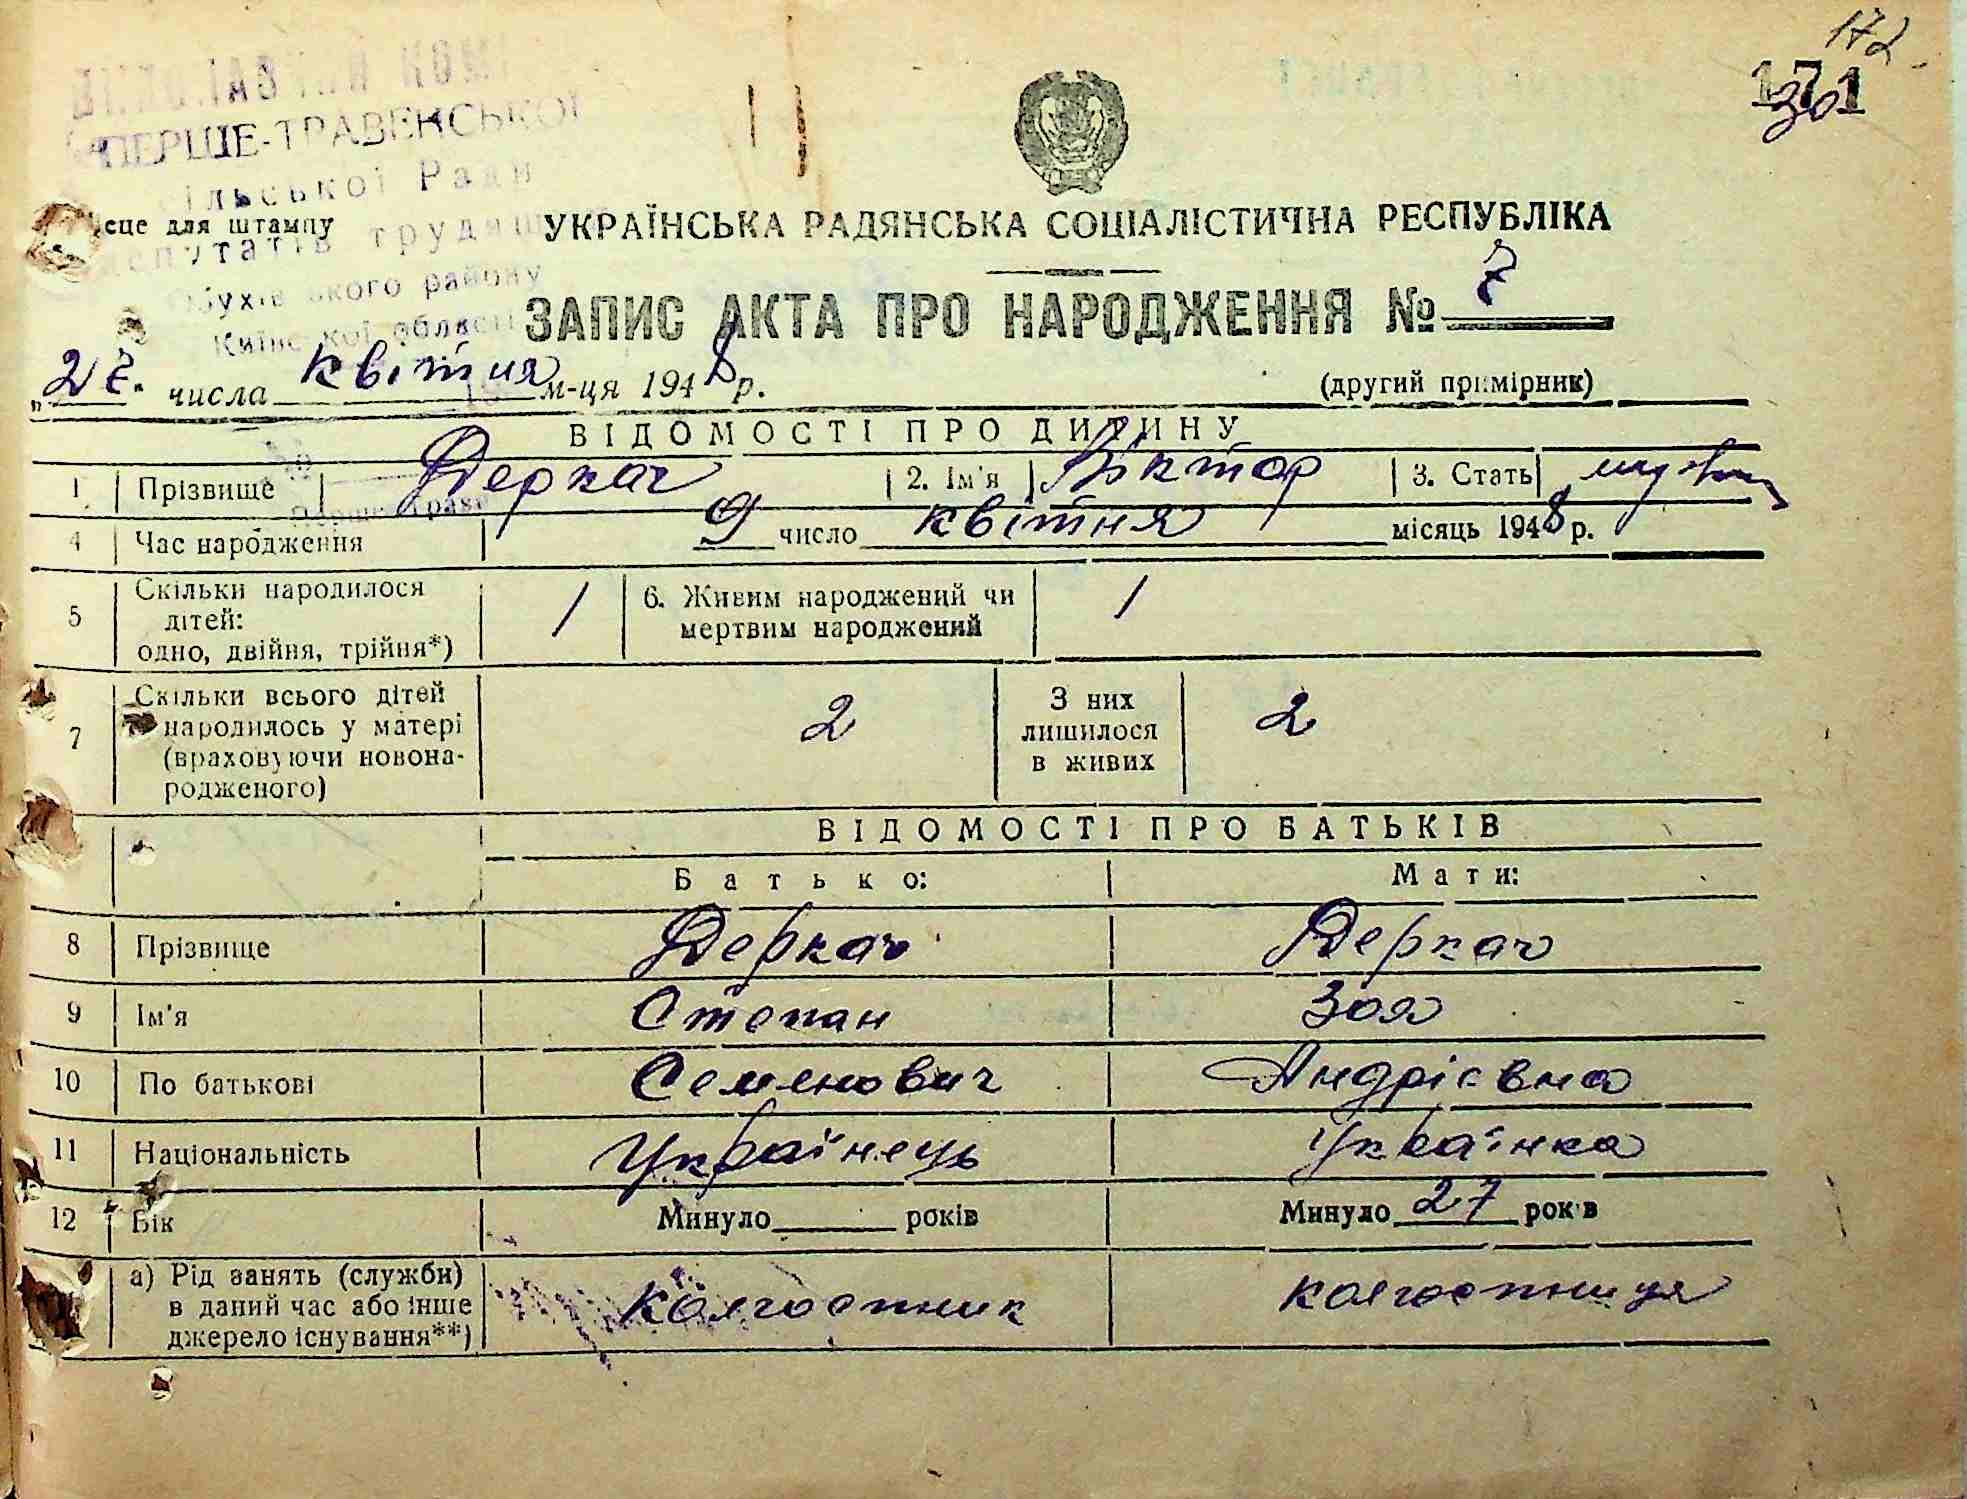 172.
171
30
ПЕРШЕ-ТРАВЕНСЬКОЇ
сільської Ради
депутатів трудящих
Обухівського району
Київської області
Місце для штампу
УКРАЇНСЬКА РАДЯНСЬКА СОЦІАЛІСТИЧНА РЕСПУБЛІКА
ЗАПИС АКТА ПРО НАРОДЖЕННЯ № 7
„27" числа квітня м-ця 1948 р. (другий примірник)
ВІДОМОСТІ ПРО ДИТИНУ
1 Прізвище Деркач 2. Ім'я Віктор 3. Стать
4 Час народження 9 число квітня місяць 1948 р.
5 Скільки народилося дітей: одно, двійня, трійня*) 1 6. Живим народжений чи мертвим народжений 1
7 Скільки всього дітей народилось у матері (враховуючи новонародженого) 2 З них лишилося в живих 2
ВІДОМОСТІ ПРО БАТЬКІВ
Батько: Мати:
8 Прізвище Деркач Деркач
9 Ім'я Степан Зоя
10 По батькові Семенович Андрієвна
11 Національність Українець Українка
12 Вік Минуло років Минуло 27 років
а) Рід занять (служби) в даний час або інше джерело існування**) колгоспник колгоспниця